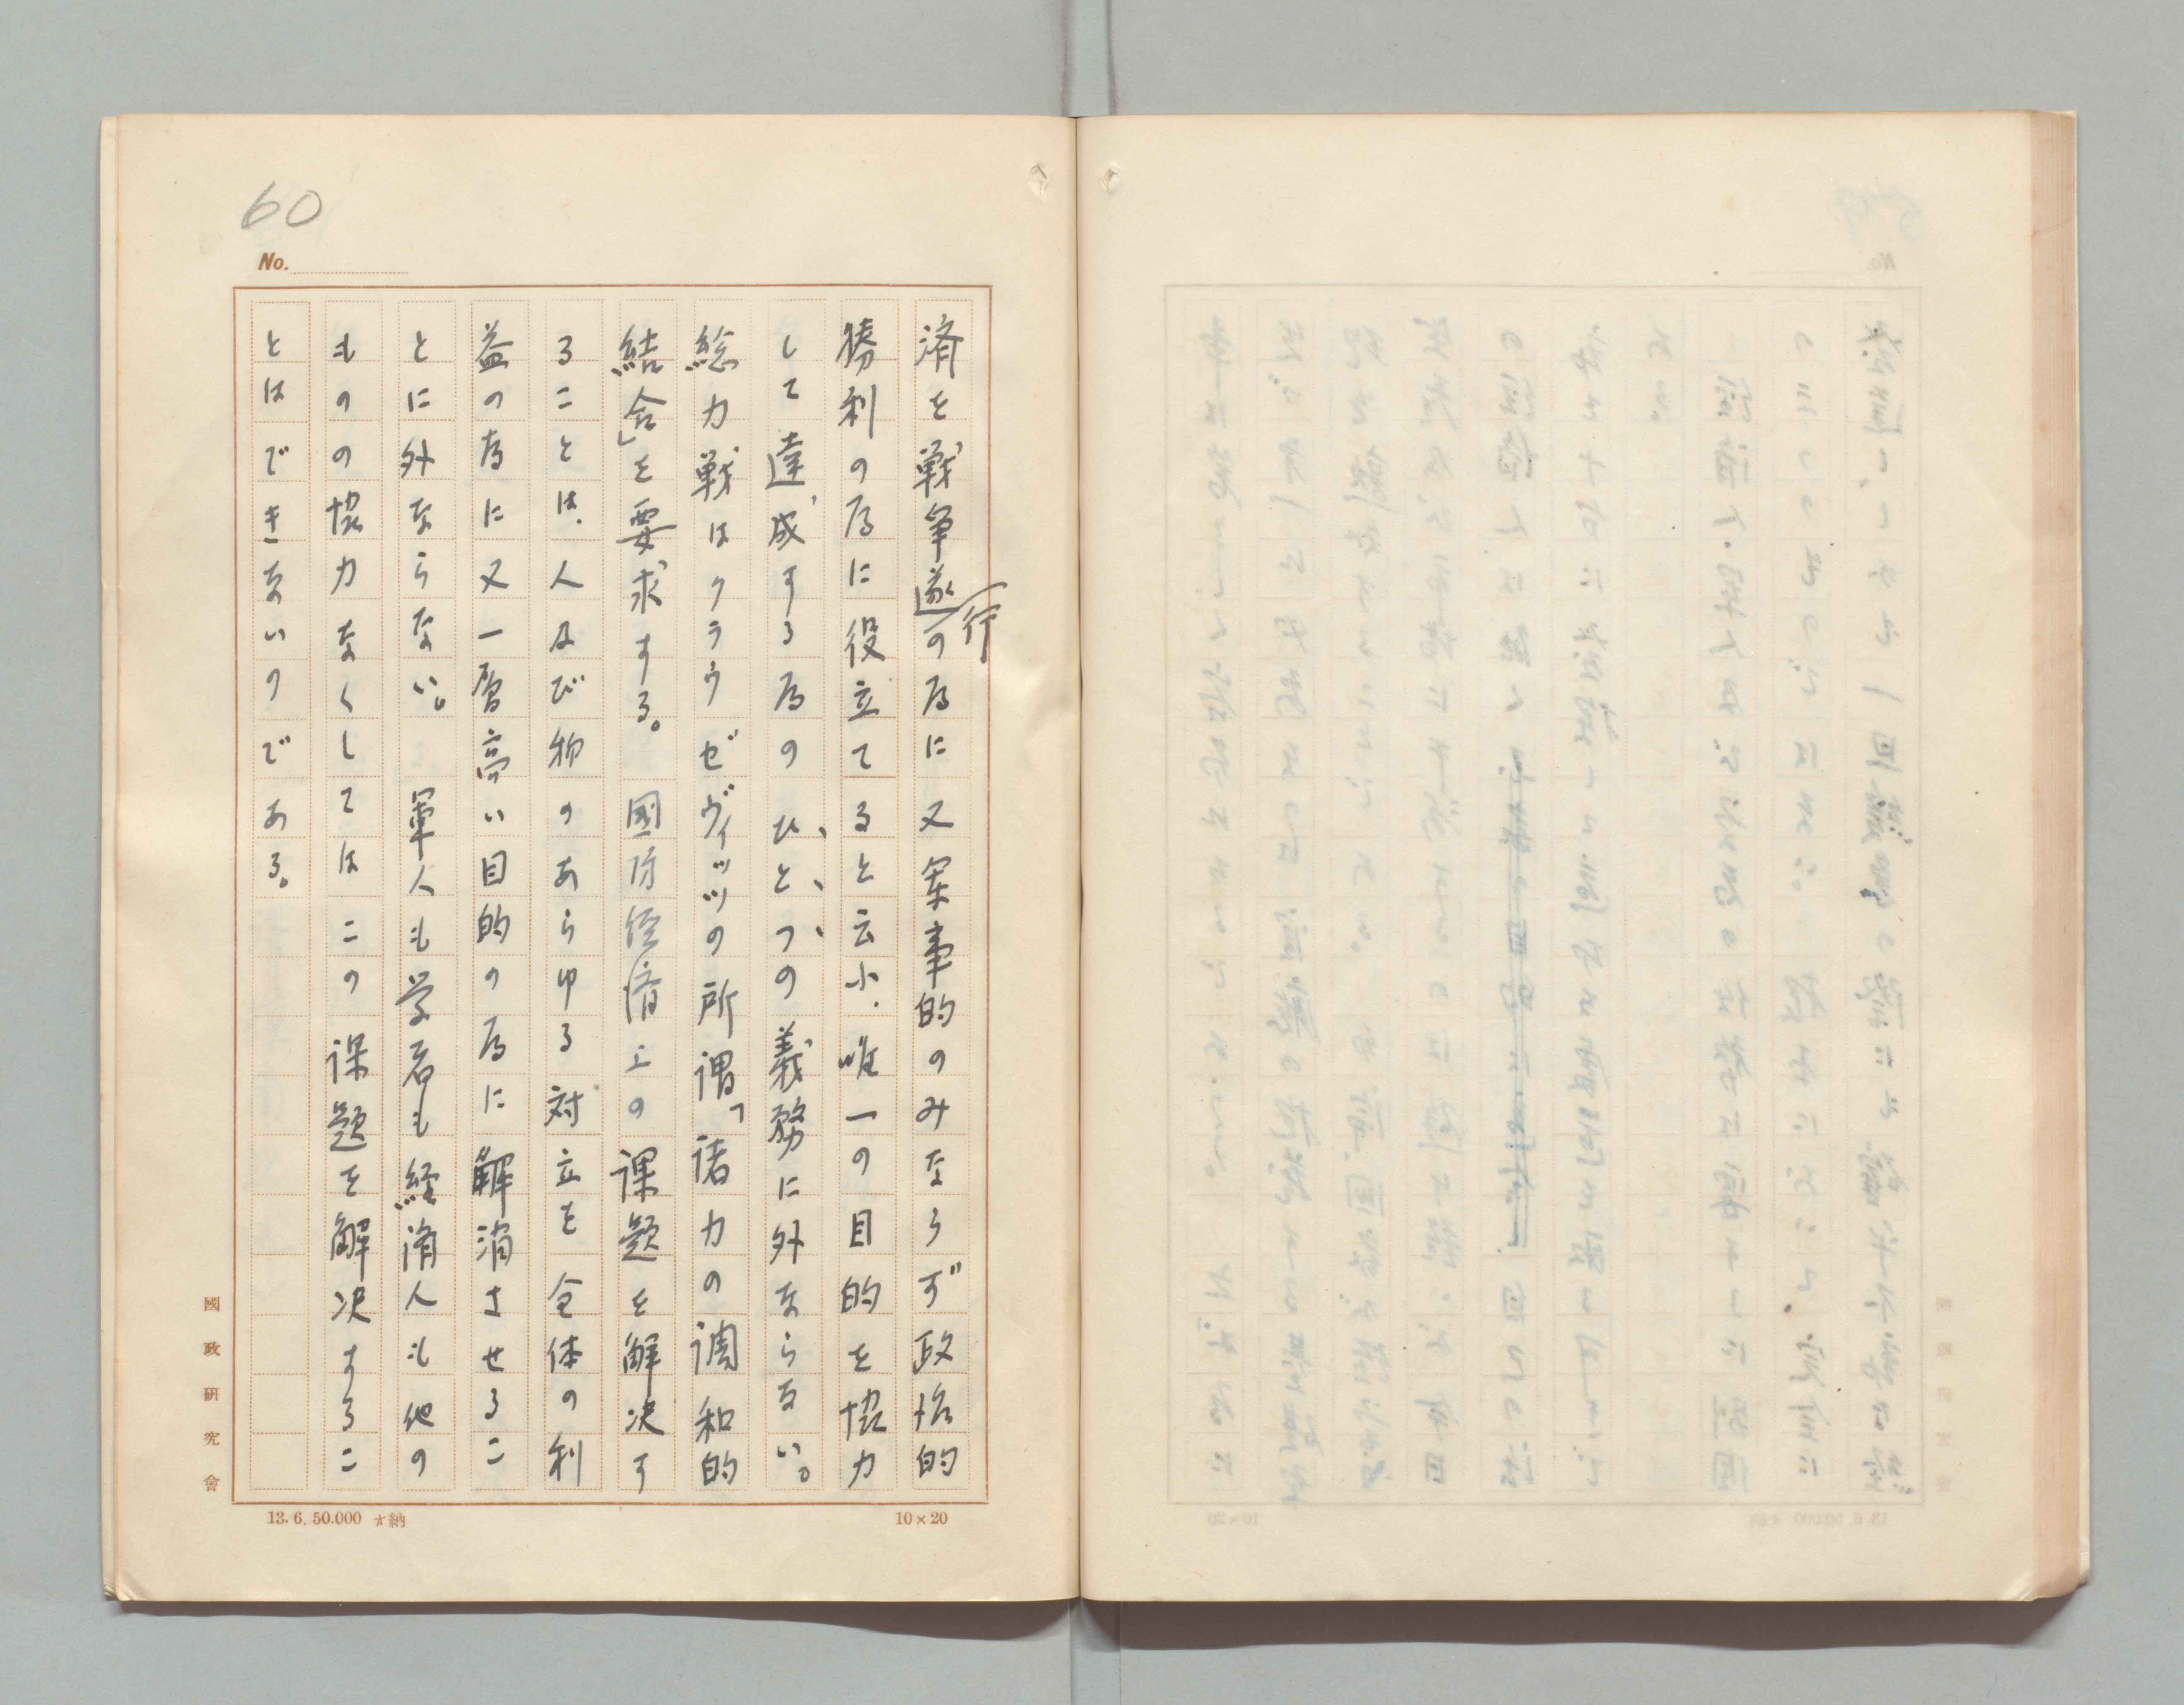 60
No.
済を戦争遂行の為に又軍事的のみならず政治的
勝利の為に役立てると云ふ、唯一の目的を協力
して達成する為のひとつの義務に外ならない。
総力戦はクラウゼヴィッツの所謂「諸力の調和的
結合」を要求する。國防経済上の課題を解決す
ることは、人及び物のあらゆる対立を全体の利
益の為に又一層高い目的の為に解消させるこ
とに外ならない。軍人も学者も経済人も他の
ものの協力なくしてはこの課題を解决するこ
とはできないのである。
國政研究會
13.6.50.000 納
10×20